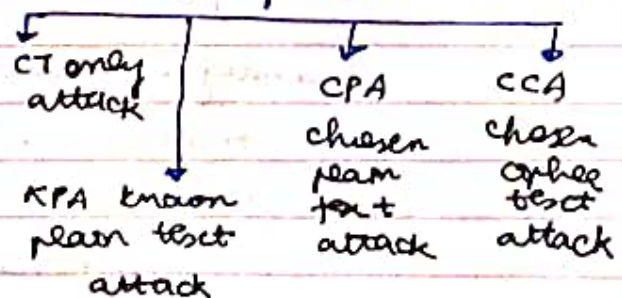 CT only
attack
KPA known
plain text
attack
CPA
chosen
plain
text
attack
CCA
chosen
cipher
text
attack